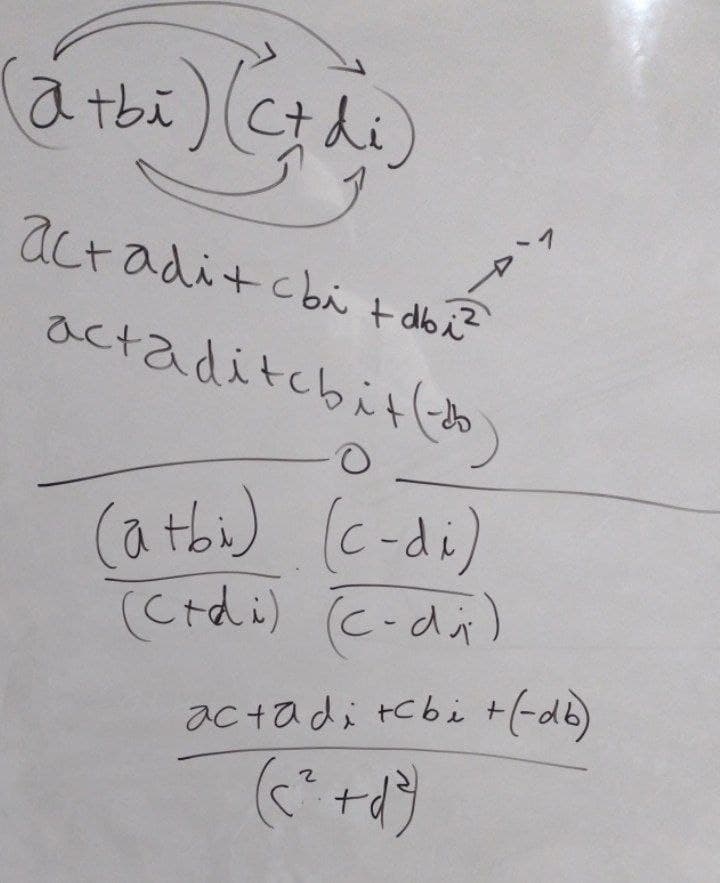 (a+bi)(c+di)
-1
ac+adi+cbi+dbi²
ac+adi+cbi+(-db)
(a+bi) . (c-di)
(c+di) (c-di)
ac+adi+cbi+(-db)
(c²+d²)